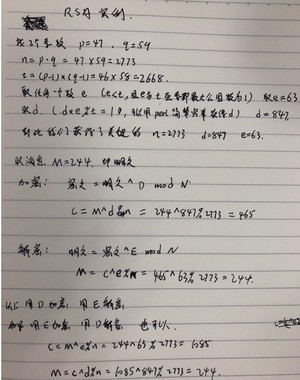 RSA 实例.
找2个素数 p=47, q=59
n=p·q = 47×59=2773
t=(p-1)×(q-1)=46×58=2668.
取任何一个数 e (e<t, 且e与t 最大公因数为1) 取e=63
求 d. (d×e%t=1, 用perl 简单 穷举 获得d) d=847
到此 我们 获得了关键的 n=2773 d=847 e=63.
取消息 M=244. 即明文
加密: 密文 = 明文^D mod N
C = M^d%n = 244^847%2773 = 465
解密: 明文 = 密文^E mod N
M = C^e%n = 465^63%2773 = 244.
以上 用D加密, 用E解密
如果 用E加密, 用D解密, 也可以.
C = M^e%n = 244^63%2773 = 1085
M = C^d%n = 1085^847%2773 = 244.